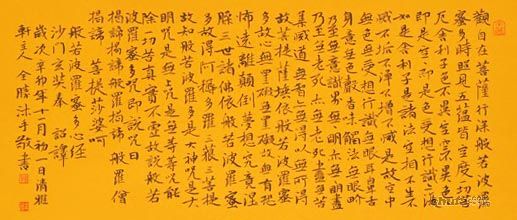 觀自在菩薩行深般若波羅
蜜多時照見五蘊皆空度一切苦
厄舍利子色不異空空不異色色
即是空空即是色受想行識亦復
如是舍利子是諸法空相不生不
滅不垢不淨不增不減是故空中
無色無受想行識無眼耳鼻舌
身意無色聲香味觸法無眼界
乃至無意識界無無明亦無無明盡
乃至無老死亦無老死盡無苦
集滅道無智亦無得以無所得
故菩提薩埵依般若波羅蜜多
故心無罣礙無罣礙故無有恐
怖遠離顛倒夢想究竟涅
槃三世諸佛依般若波羅蜜
多故得阿耨多羅三藐三菩提
故知般若波羅蜜多是大神咒是大
明咒是無上咒是無等等咒能
除一切苦真實不虛故說般若
波羅蜜多咒即說咒曰
揭諦揭諦般羅揭諦般羅僧
揭諦 菩提莎婆呵
般若波羅蜜多心經
沙門玄奘奉 詔譯
歲次辛卯年十月初一日清雅
軒主人 沐手敬書